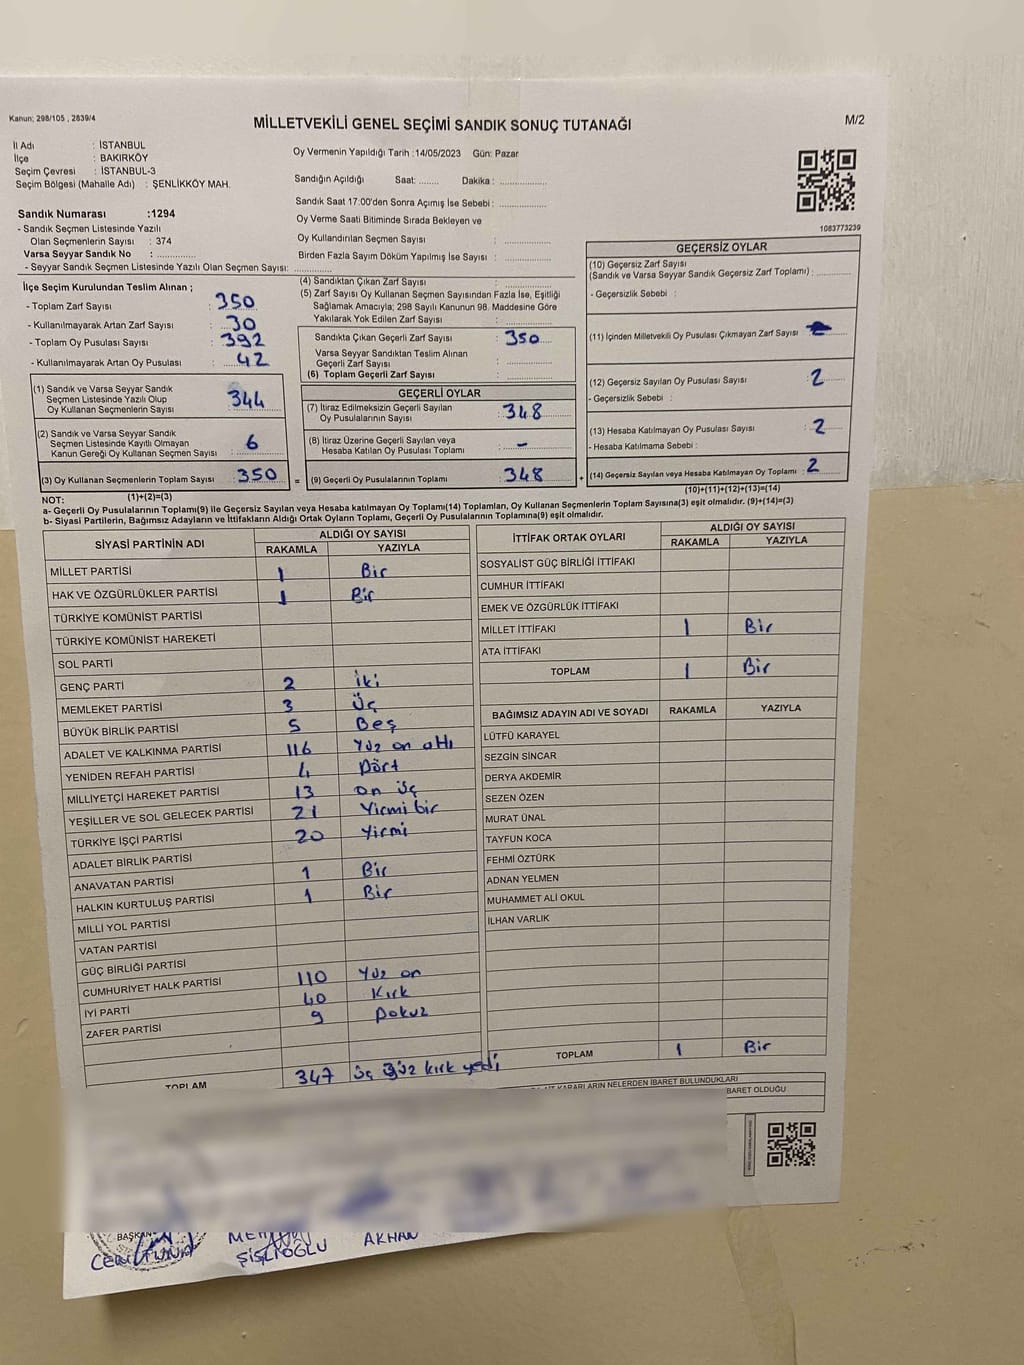 Kanun; 298/105 , 2839/4
MİLLETVEKİLİ GENEL SEÇİMİ SANDIK SONUÇ TUTANAĞI
M/2
İl Adı : İSTANBUL
İlçe : BAKIRKÖY
Seçim Çevresi : İSTANBUL-3
Seçim Bölgesi (Mahalle Adı) : ŞENLİKKÖY MAH.
Sandık Numarası :1294
- Sandık Seçmen Listesinde Yazılı
Olan Seçmenlerin Sayısı : 374
Varsa Seyyar Sandık No : ..............
- Seyyar Sandık Seçmen Listesinde Yazılı Olan Seçmen Sayısı: ..............
Oy Vermenin Yapıldığı Tarih :14/05/2023 Gün: Pazar
Sandığın Açıldığı Saat: ........ Dakika : ................
Sandık Saat 17:00'den Sonra Açımış İse Sebebi : ................
Oy Verme Saati Bitiminde Sırada Bekleyen ve
Oy Kullandırılan Seçmen Sayısı : ................
Birden Fazla Sayım Döküm Yapılmış İse Sayısı : ................
1083773239
İlçe Seçim Kurulundan Teslim Alınan ;
- Toplam Zarf Sayısı : 350
- Kullanılmayarak Artan Zarf Sayısı : 30
- Toplam Oy Pusulası Sayısı : 392
- Kullanılmayarak Artan Oy Pusulası : 42
(1) Sandık ve Varsa Seyyar Sandık
Seçmen Listesinde Yazılı Olup
Oy Kullanan Seçmenlerin Sayısı : 344
(2) Sandık ve Varsa Seyyar Sandık
Seçmen Listesinde Kayıtlı Olmayan
Kanun Gereği Oy Kullanan Seçmen Sayısı : 6
(3) Oy Kullanan Seçmenlerin Toplam Sayısı : 350
(1)+(2)=(3)
(4) Sandıktan Çıkan Zarf Sayısı : ................
(5) Zarf Sayısı Oy Kullanan Seçmen Sayısından Fazla İse, Eşitliği
Sağlamak Amacıyla; 298 Sayılı Kanunun 98. Maddesine Göre
Yakılarak Yok Edilen Zarf Sayısı : ................
Sandıkta Çıkan Geçerli Zarf Sayısı : 350
Varsa Seyyar Sandıktan Teslim Alınan
Geçerli Zarf Sayısı : ................
(6) Toplam Geçerli Zarf Sayısı : ................
GEÇERLİ OYLAR
(7) İtiraz Edilmeksizin Geçerli Sayılan
Oy Pusulalarının Sayısı : 348
(8) İtiraz Üzerine Geçerli Sayılan veya
Hesaba Katılan Oy Pusulası Toplamı : -
= (9) Geçerli Oy Pusulalarının Toplamı : 348 +
GEÇERSİZ OYLAR
(10) Geçersiz Zarf Sayısı
(Sandık ve Varsa Seyyar Sandık Geçersiz Zarf Toplamı) : ..........
- Geçersizlik Sebebi :
(11) İçinden Milletvekili Oy Pusulası Çıkmayan Zarf Sayısı :
(12) Geçersiz Sayılan Oy Pusulası Sayısı : 2
- Geçersizlik Sebebi :
(13) Hesaba Katılmayan Oy Pusulası Sayısı : 2
- Hesaba Katılmama Sebebi :
(14) Geçersiz Sayılan veya Hesaba Katılmayan Oy Toplamı : 2
(10)+(11)+(12)+(13)=(14)
NOT:
a- Geçerli Oy Pusulalarının Toplamı(9) ile Geçersiz Sayılan veya Hesaba katılmayan Oy Toplamı(14) Toplamları, Oy Kullanan Seçmenlerin Toplam Sayısına(3) eşit olmalıdır. (9)+(14)=(3)
b- Siyasi Partilerin, Bağımsız Adayların ve İttifakların Aldığı Ortak Oyların Toplamı, Geçerli Oy Pusulalarının Toplamına(9) eşit olmalıdır.
SİYASİ PARTİNİN ADI
ALDIĞI OY SAYISI
RAKAMLA YAZIYLA
MİLLET PARTİSİ 1 Bir
HAK VE ÖZGÜRLÜKLER PARTİSİ 1 Bir
TÜRKİYE KOMÜNİST PARTİSİ
TÜRKİYE KOMÜNİST HAREKETİ
SOL PARTİ
GENÇ PARTİ 2 iki
MEMLEKET PARTİSİ 3 üç
BÜYÜK BİRLİK PARTİSİ 5 Beş
ADALET VE KALKINMA PARTİSİ 116 Yüz on altı
YENİDEN REFAH PARTİSİ 4 Dört
MİLLİYETÇİ HAREKET PARTİSİ 13 on üç
YEŞİLLER VE SOL GELECEK PARTİSİ 21 Yirmi bir
TÜRKİYE İŞÇİ PARTİSİ 20 Yirmi
ADALET BİRLİK PARTİSİ
ANAVATAN PARTİSİ 1 Bir
HALKIN KURTULUŞ PARTİSİ 1 Bir
MİLLİ YOL PARTİSİ
VATAN PARTİSİ
GÜÇ BİRLİĞİ PARTİSİ
CUMHURİYET HALK PARTİSİ 110 Yüz on
İYİ PARTİ 40 Kırk
ZAFER PARTİSİ 9 Dokuz
TOPLAM 347 üç yüz kırk yedi
İTTİFAK ORTAK OYLARI
ALDIĞI OY SAYISI
RAKAMLA YAZIYLA
SOSYALİST GÜÇ BİRLİĞİ İTTİFAKI
CUMHUR İTTİFAKI
EMEK VE ÖZGÜRLÜK İTTİFAKI
MİLLET İTTİFAKI 1 Bir
ATA İTTİFAKI
TOPLAM 1 Bir
BAĞIMSIZ ADAYIN ADI VE SOYADI RAKAMLA YAZIYLA
LÜTFÜ KARAYEL
SEZGİN SİNCAR
DERYA AKDEMİR
SEZEN ÖZEN
MURAT ÜNAL
TAYFUN KOCA
FEHMİ ÖZTÜRK
ADNAN YELMEN
MUHAMMET ALİ OKUL
İLHAN VARLIK
TOPLAM 1 Bir
KARARLARIN NELERDEN İBARET BULUNDUKLARI
BARET OLDUĞU
BAŞKAN
ŞİŞLİOĞLU
AKHAN